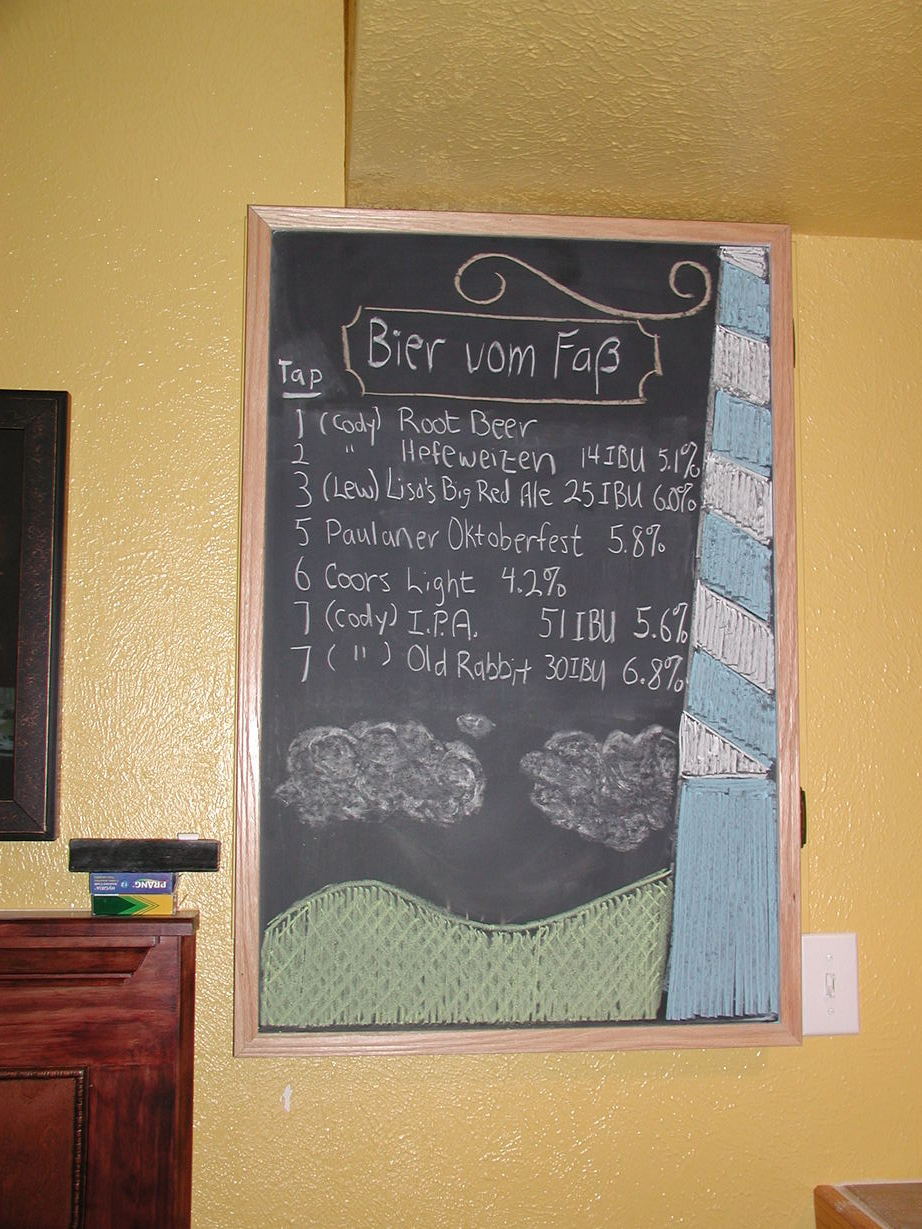 Bier vom Faß
Tap
1 (Cody) Root Beer
2 " Hefeweizen 14 IBU 5.1%
3 (Lew) Lisa's Big Red Ale 25 IBU 6.0%
5 Paulaner Oktoberfest 5.8%
6 Coors Light 4.2%
7 (Cody) I.P.A. 51 IBU 5.6%
7 ( " ) Old Rabbit 30 IBU 6.8%
PRANG
HYGIEIA